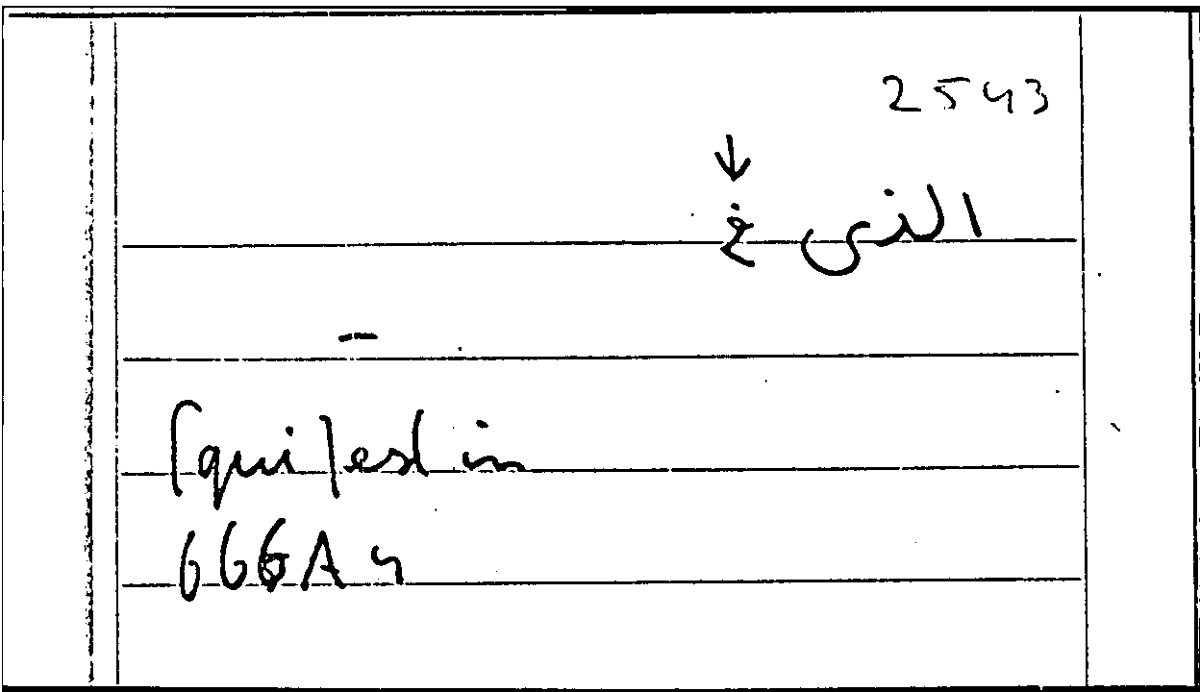 2543
↓
الذى فى
–
[qui] est in
666A4